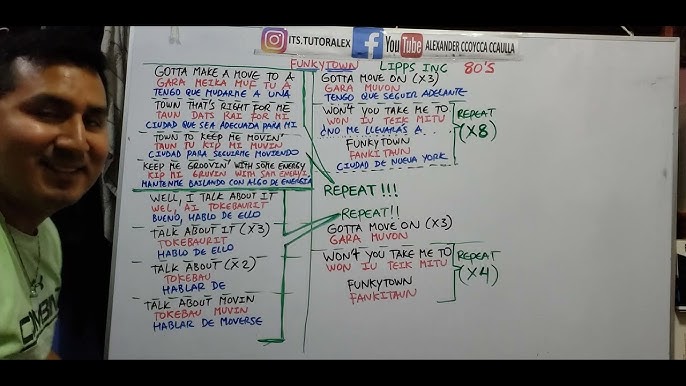 ITS.TUTORALEX f You Tube ALEXANDER CCOYCCA CCAULLA
FUNKYTOWN LIPPS INC 80'S
GOTTA MAKE A MOVE TO A
GARA MEIKA MUF TU A
TENGO QUE MUDARME A UNA
TOWN THAT'S RIGHT FOR ME
TAUN DATS RAI FOR MI
CIUDAD QUE SEA ADECUADA PARA MI
TOWN TO KEEP ME MOVIN'
TAUN TU KIP MI MUVIN
CIUDAD PARA SEGUIRME MOVIENDO
KEEP ME GROOVIN' WITH SOME ENERGY
KIP MI GRUVIN WITH SAM ENERYI
MANTENME BAILANDO CON ALGO DE ENERGIA
WELL, I TALK ABOUT IT
WEL, AI TOKEBAURIT
BUENO, HABLO DE ELLO
TALK ABOUT IT (X3)
TOKEBAURIT
HABLO DE ELLO
TALK ABOUT (X2)
TOKEBAU
HABLAR DE
TALK ABOUT MOVIN
TOKEBAU MUVIN
HABLAR DE MOVERSE
GOTTA MOVE ON (X3)
GARA MUVON
TENGO QUE SEGUIR ADELANTE
WON'T YOU TAKE ME TO
WON IU TEIK MITU
¿NO ME LLEVARÁS A
FUNKYTOWN
FANKITAUN
CIUDAD DE NUEVA YORK
REPEAT
(X8)
REPEAT!!!
REPEAT!!
GOTTA MOVE ON (X3)
GARA MUVON
WON'T YOU TAKE ME TO
WON IU TEIK MITU
FUNKYTOWN
FANKITAUN
REPEAT
(X4)